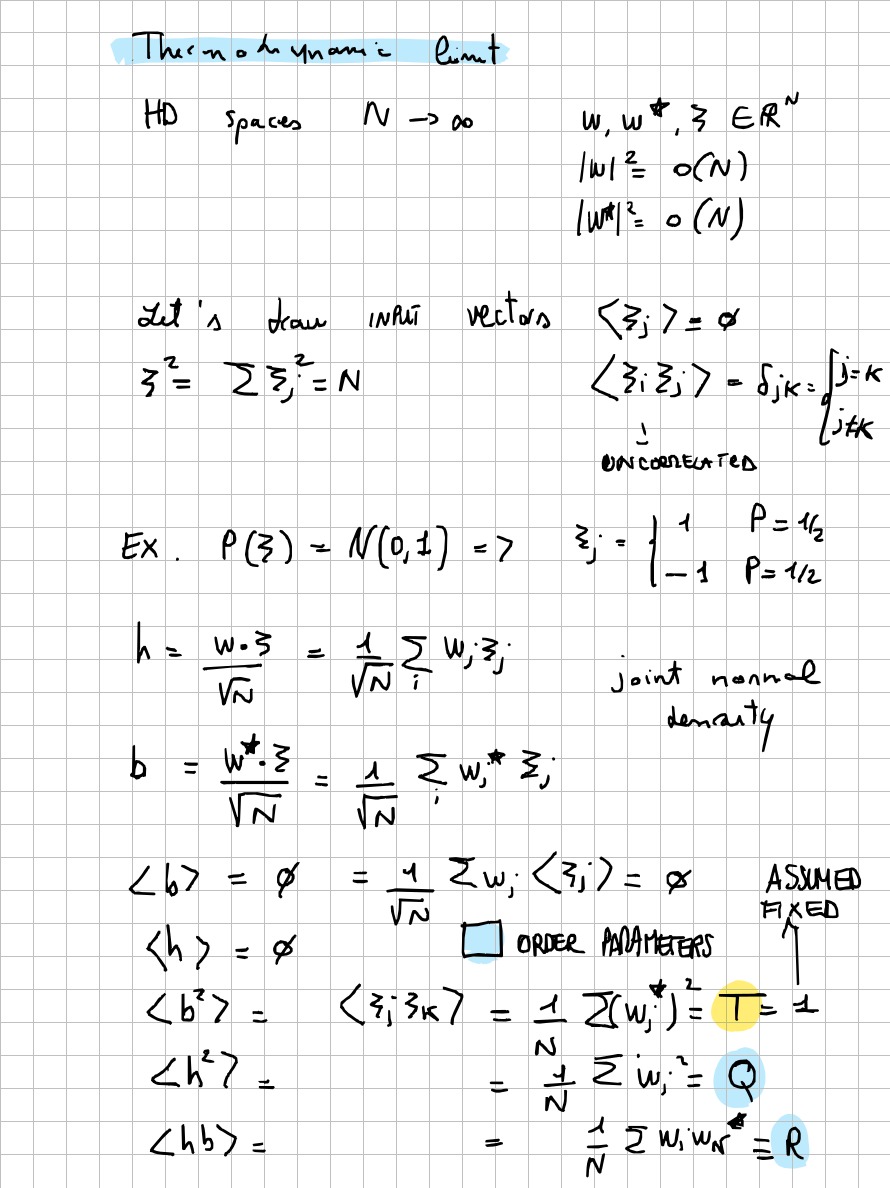 Thermodynamic limit
HD spaces N → ∞ w, w*, ξ ∈ ℝ^N
|w|² = o(N)
|w*|² = o(N)
Let's draw INPUT vectors <ξj> = ø
ξ² = Σ ξj² = N <ξi ξj> = δjk = { j=k
j≠k
UNCORRELATED
Ex. P(ξ) = N(0,1) => ξj = { 1 P = 1/2
-1 P = 1/2
h = w·ξ/√N = 1/√N Σi wj ξj
joint normal
density
b = w*·ξ/√N = 1/√N Σi wj* ξj
<b> = ø = 1/√N Σ wj <ξj> = ø ASSUMED
FIXED
<h> = ø ORDER PARAMETERS
<b²> = <ξj ξk> = 1/N Σ(wj*)² = T = 1
<h²> = = 1/N Σ wj² = Q
<hb> = = 1/N Σ wi wN* ≡ R